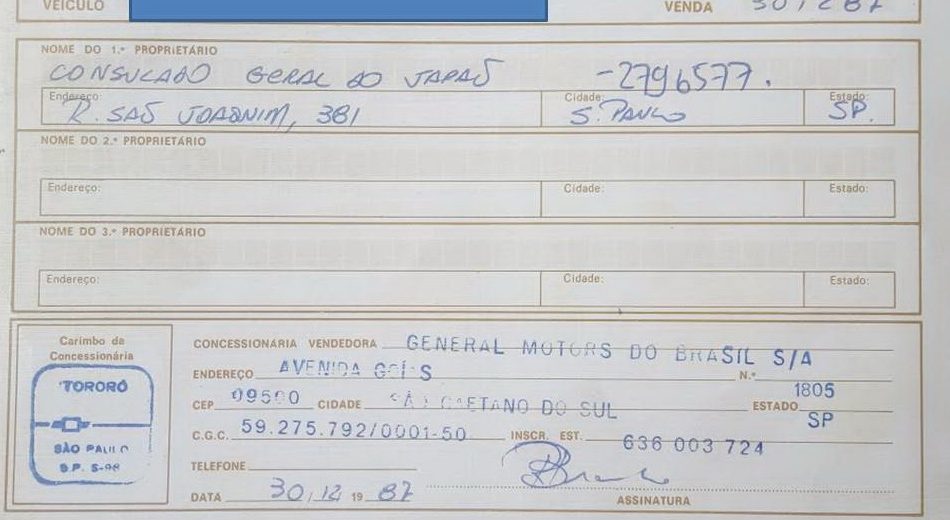 VEÍCULO VENDA 30/12 87
NOME DO 1.º PROPRIETÁRIO
CONSULADO GERAL DO JAPÃO -2796577.
Endereço: Cidade: Estado:
R. SAÕ JOAQUIM, 381 S. PAULO SP.
NOME DO 2.º PROPRIETÁRIO
Endereço: Cidade: Estado:
NOME DO 3.º PROPRIETÁRIO
Endereço: Cidade: Estado:
Carimbo da
Concessionária
TORORÓ
SÃO PAULO
S.P. S-98
CONCESSIONÁRIA VENDEDORA GENERAL MOTORS DO BRASIL S/A
ENDEREÇO AVENIDA GOIÁS N.º 1805
CEP 09500 CIDADE SÃO CAETANO DO SUL ESTADO SP
C.G.C. 59.275.792/0001-50 INSCR. EST. 636 003 724
TELEFONE
DATA 30/12 19 87
ASSINATURA